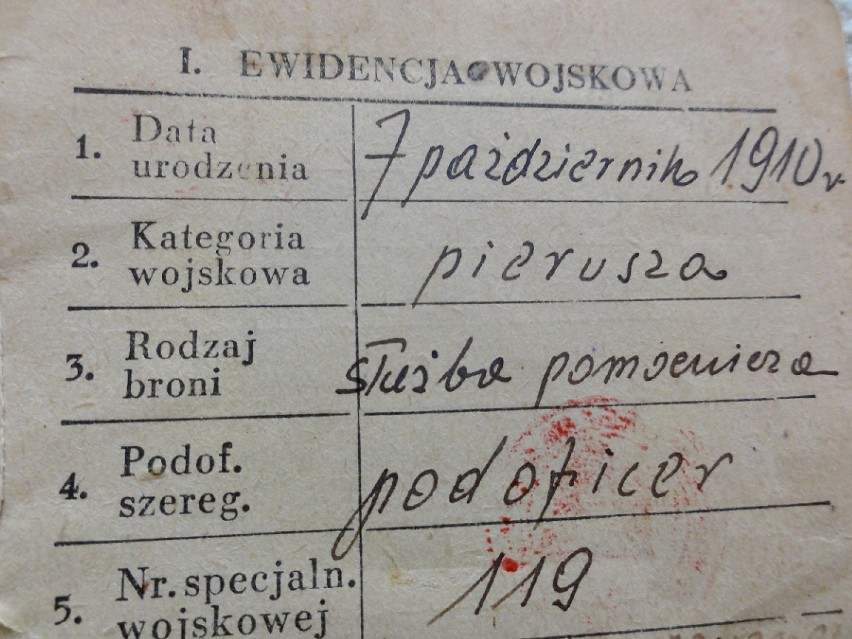 I. EWIDENCJA WOJSKOWA
1. Data urodzenia 7 październik 1910 r
2. Kategoria wojskowa pierwsza
3. Rodzaj broni służba pomocnicza
4. Podof. szereg. podoficer
5. Nr. specjaln. wojskowej 119